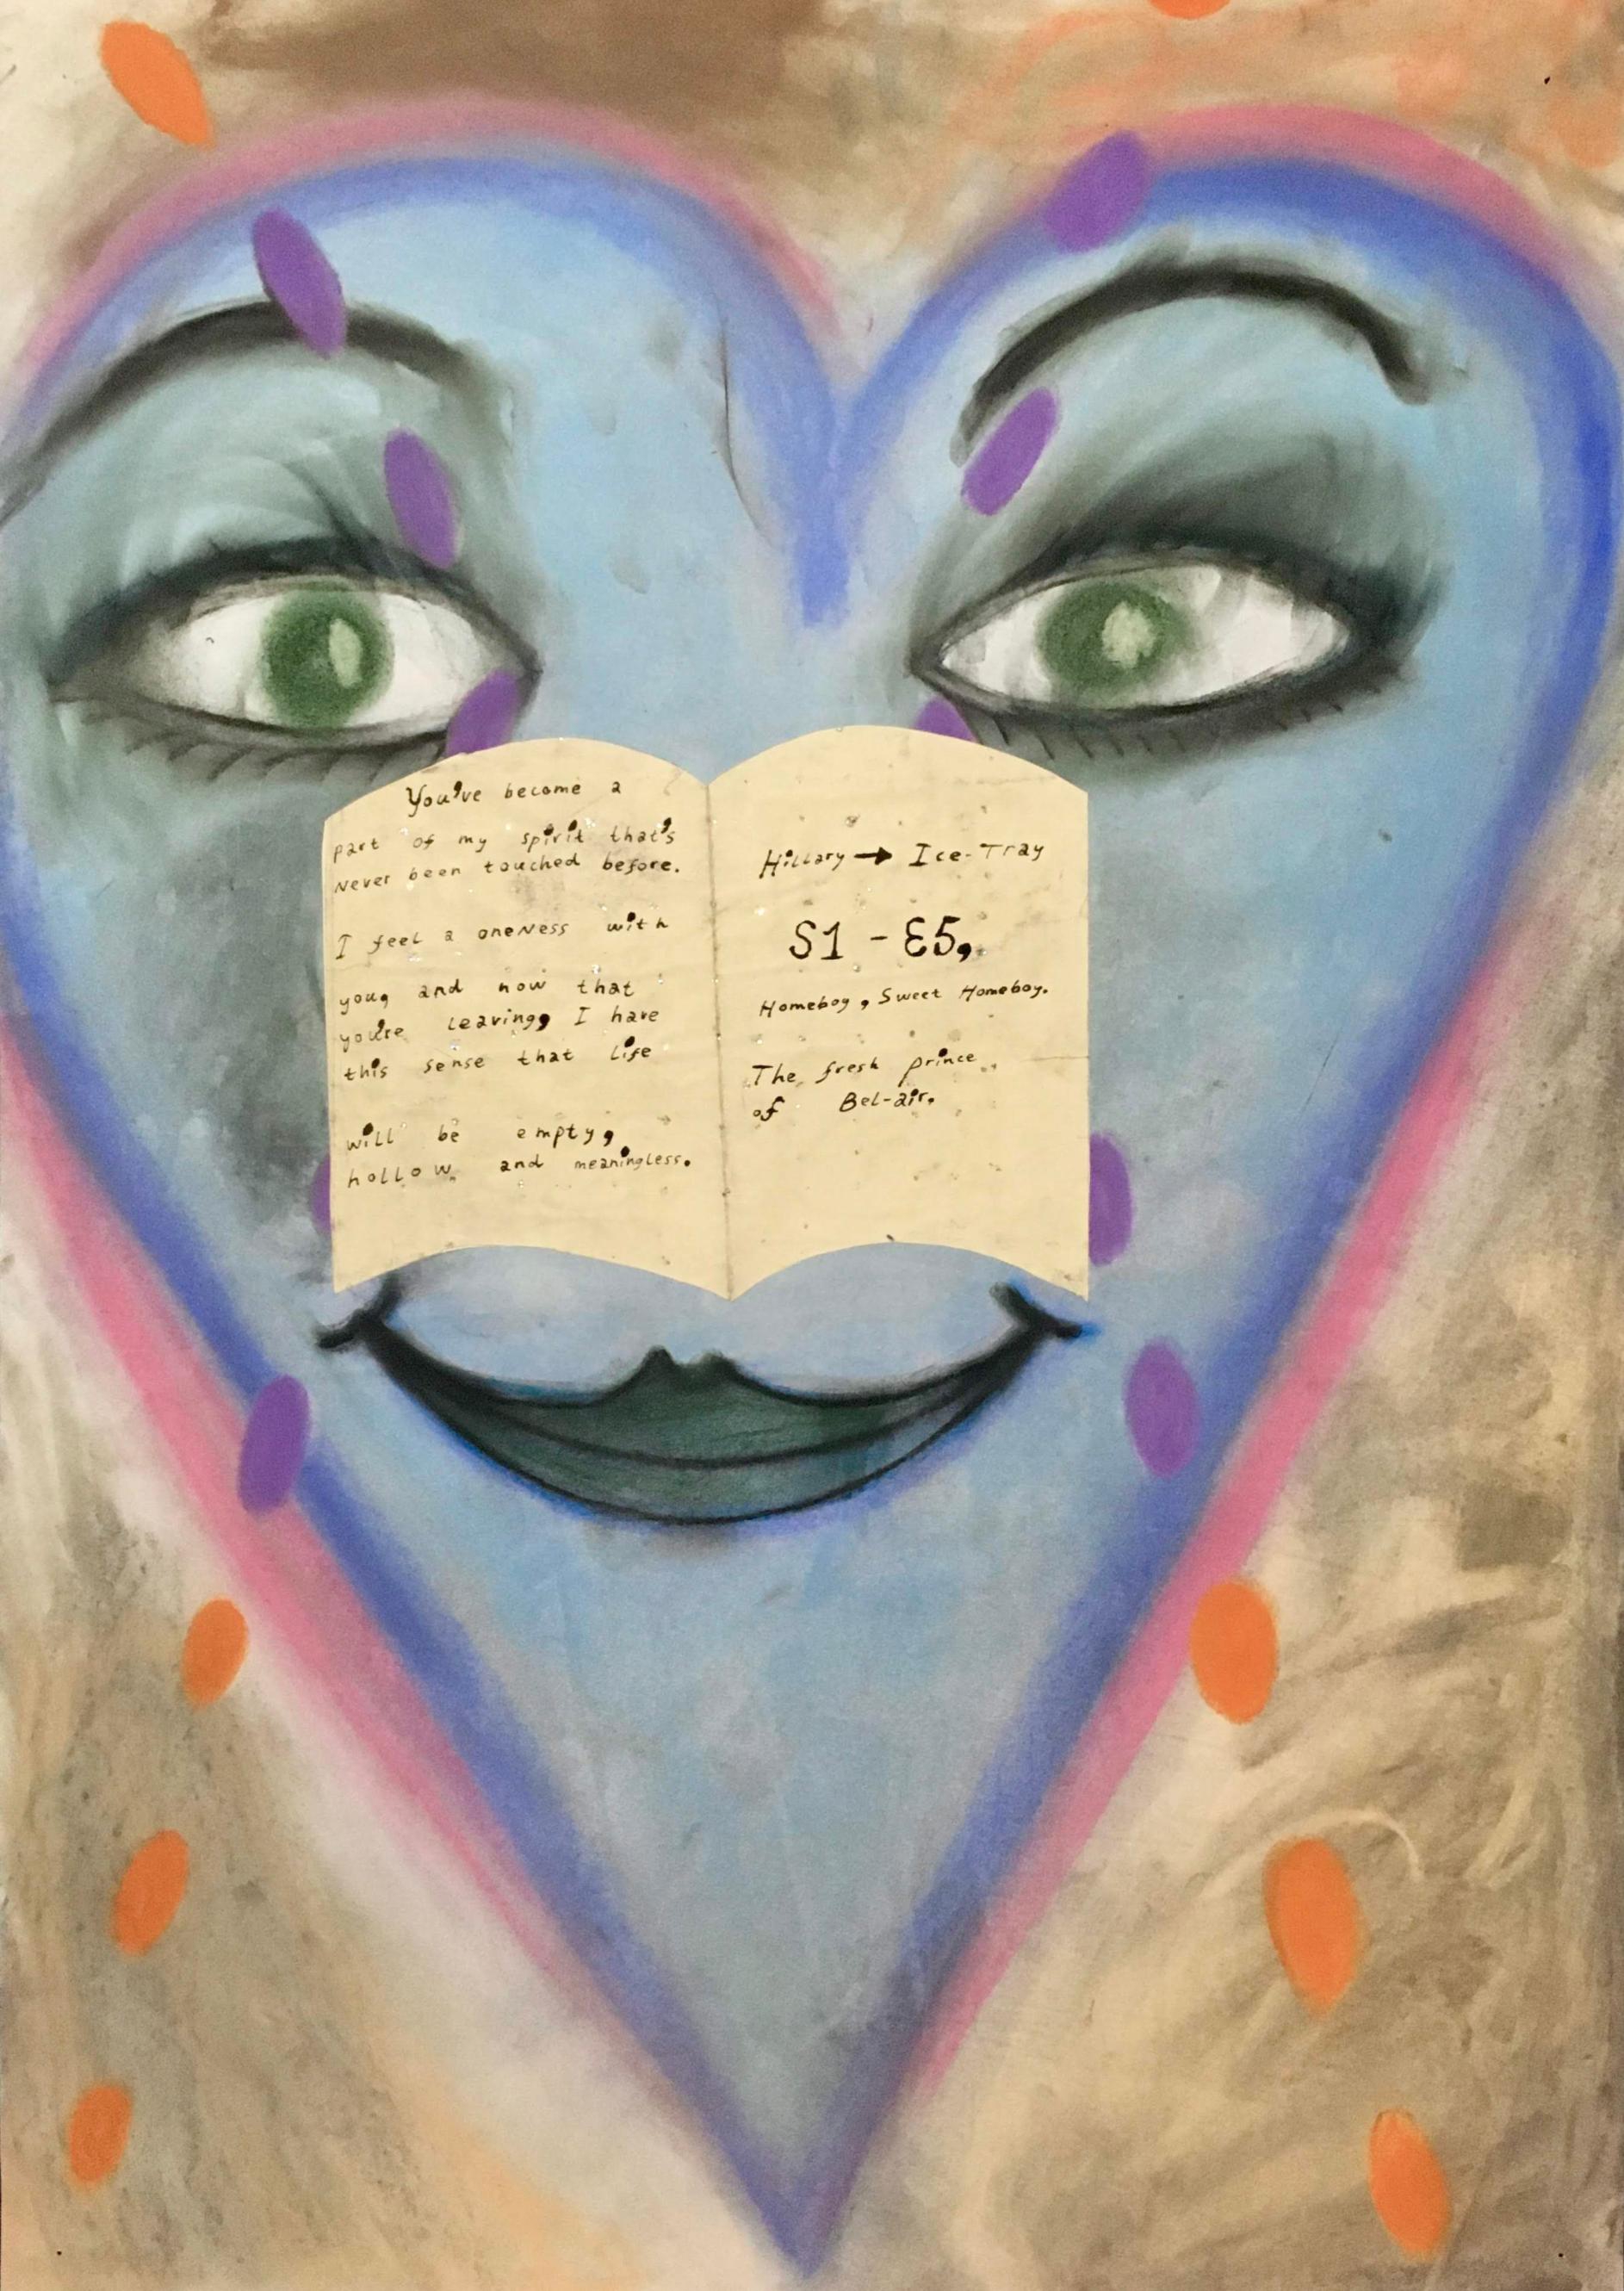 You've become a
part of my spirit that's
Never been touched before.
I feel a oneNess with
you, and now that
you're leaving, I have
this sense that life
will be empty,
hollow and meaningless.
Hillary → Ice-Tray
S1 - E5,
Homeboy, Sweet Homeboy.
The fresh prince
of Bel-air.